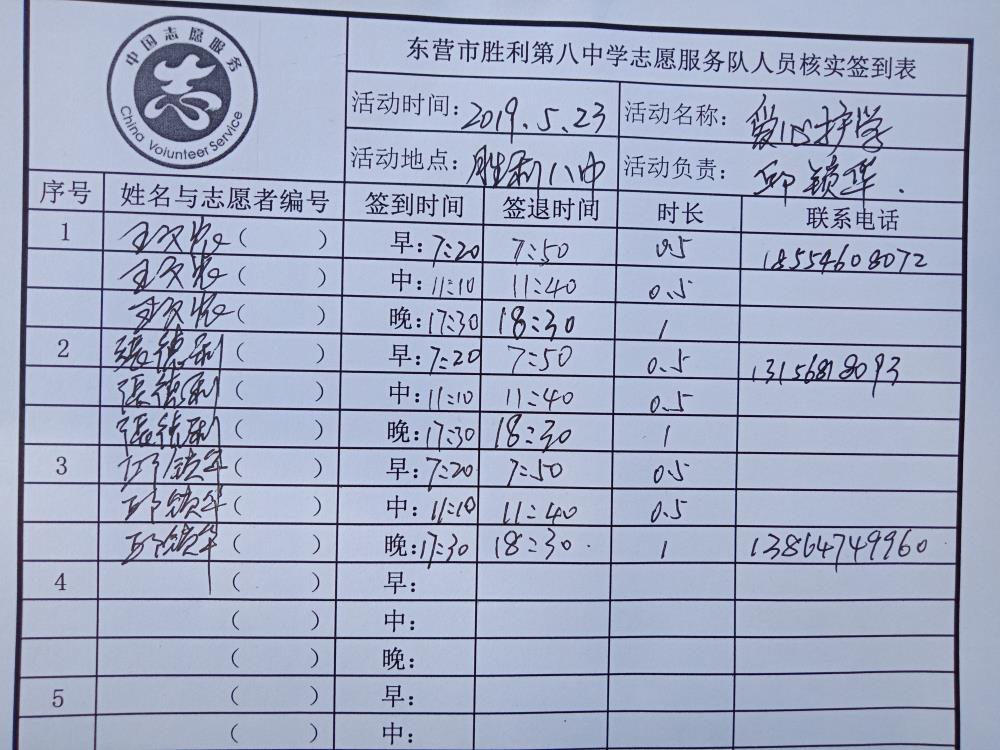 中国志愿服务
China Volunteer Service
东营市胜利第八中学志愿服务队人员核实签到表
活动时间: 2019.5.23 活动名称: 爱心护学
活动地点: 胜利八中 活动负责: 邱锁华.
序号 姓名与志愿者编号 签到时间 签退时间 时长 联系电话
1 ( ) 早:7:20 7:50 0.5 18554608072
( ) 中:11:10 11:40 0.5
( ) 晚:17:30 18:30 1
2 張德利( ) 早:7:20 7:50 0.5 13156818093
張德利( ) 中:11:10 11:40 0.5
張德利( ) 晚:17:30 18:30 1
3 邱锁华( ) 早:7:20 7:50 0.5
邱锁华( ) 中:11:10 11:40 0.5
邱锁华( ) 晚:17:30 18:30 1 13864749960
4 ( ) 早:
( ) 中:
( ) 晚:
5 ( ) 早:
( ) 中: